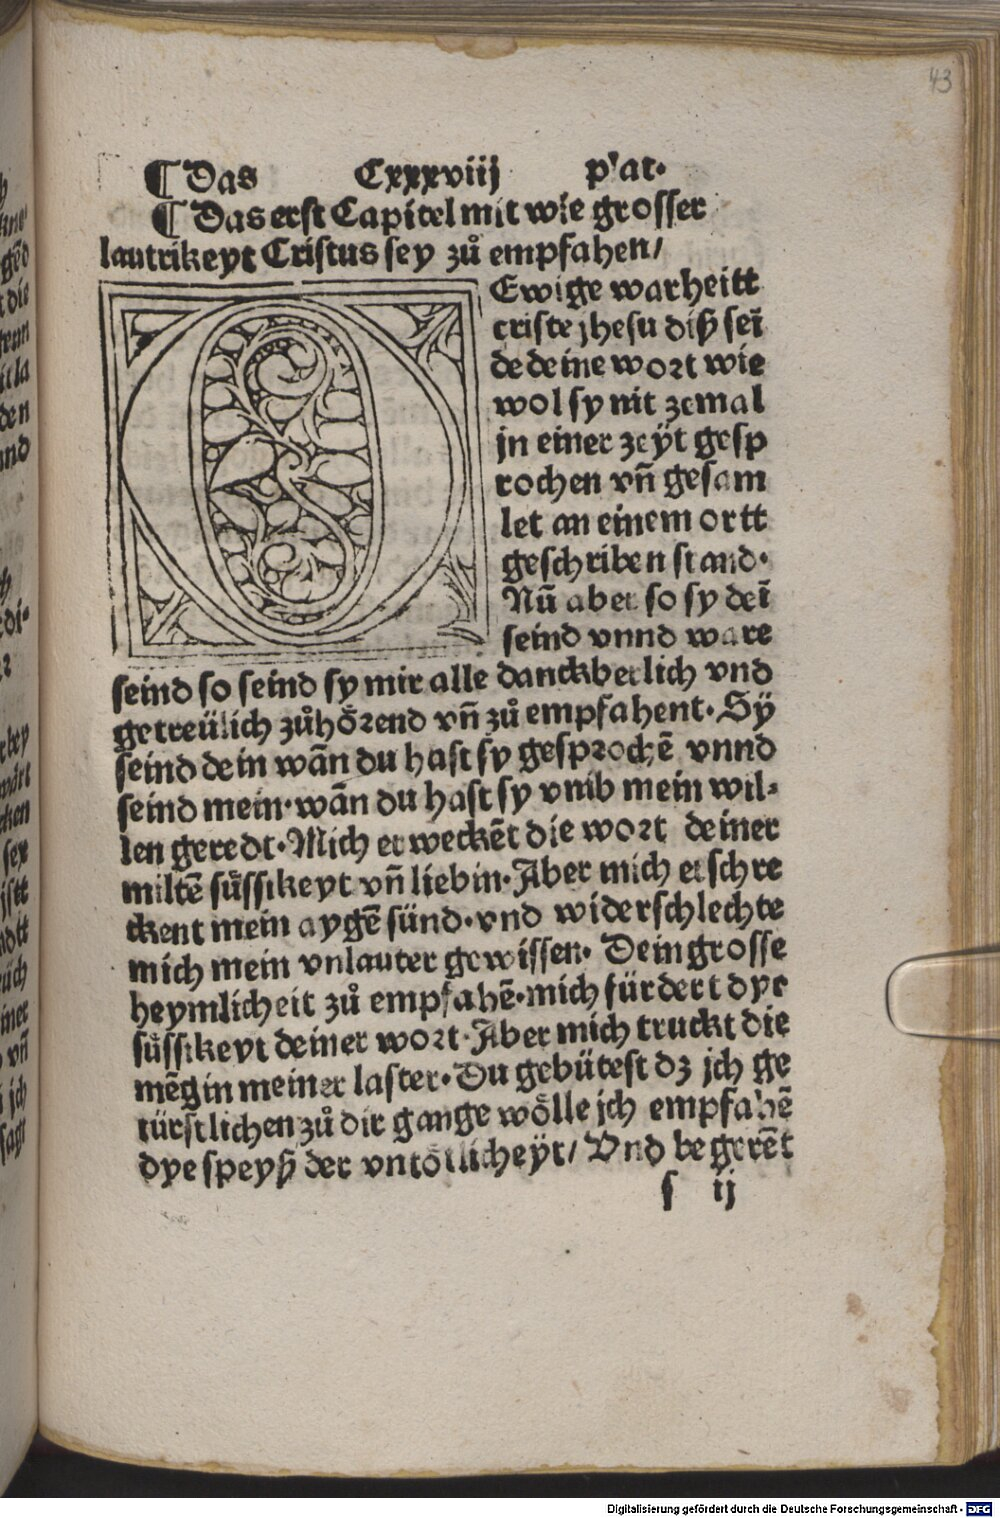 43
¶ Das Cxxxviij plat.
¶ Das erst Capitel mit wie grosser
lautrikeyt Cristus sey zů empfahen/
O Ewige warheitt
criste jhesu diß seī
de deine wort wie
wol sy nit zemal
jn einer zeÿt gesp
rochen vn̄ gesam
let an einem ortt
geschriben stand.
Nū aber so sy deī
seind vnnd ware
seind so seind sy mir alle danckberlich vnd
getreülich zůhoͤrend vn̄ zů empfahent. Sÿ
seind dein wān du hast sy gesprochē vnnd
seind mein. wān du hast sy vmb mein wil⸗
len geredt. Mich erweckēt die wort deiner
miltē suͤssikeyt vn̄ liebin. Aber mich erschre
ckent mein aygē sünd. vnd widerschlechte
mich mein vnlauter gewissen. Dein grosse
heymlicheit zů empfahē. mich fürdert dye
suͤssikeyt deiner wort. Aber mich truckt die
mēgin meiner laster. Du gebütest dz jch ge
türstlichen zů dir gange woͤlle jch empfahē
dye speyß der vntoͤtlicheÿt/ Vnd begerēt
s ij
Digitalisierung gefördert durch die Deutsche Forschungsgemeinschaft - DFG